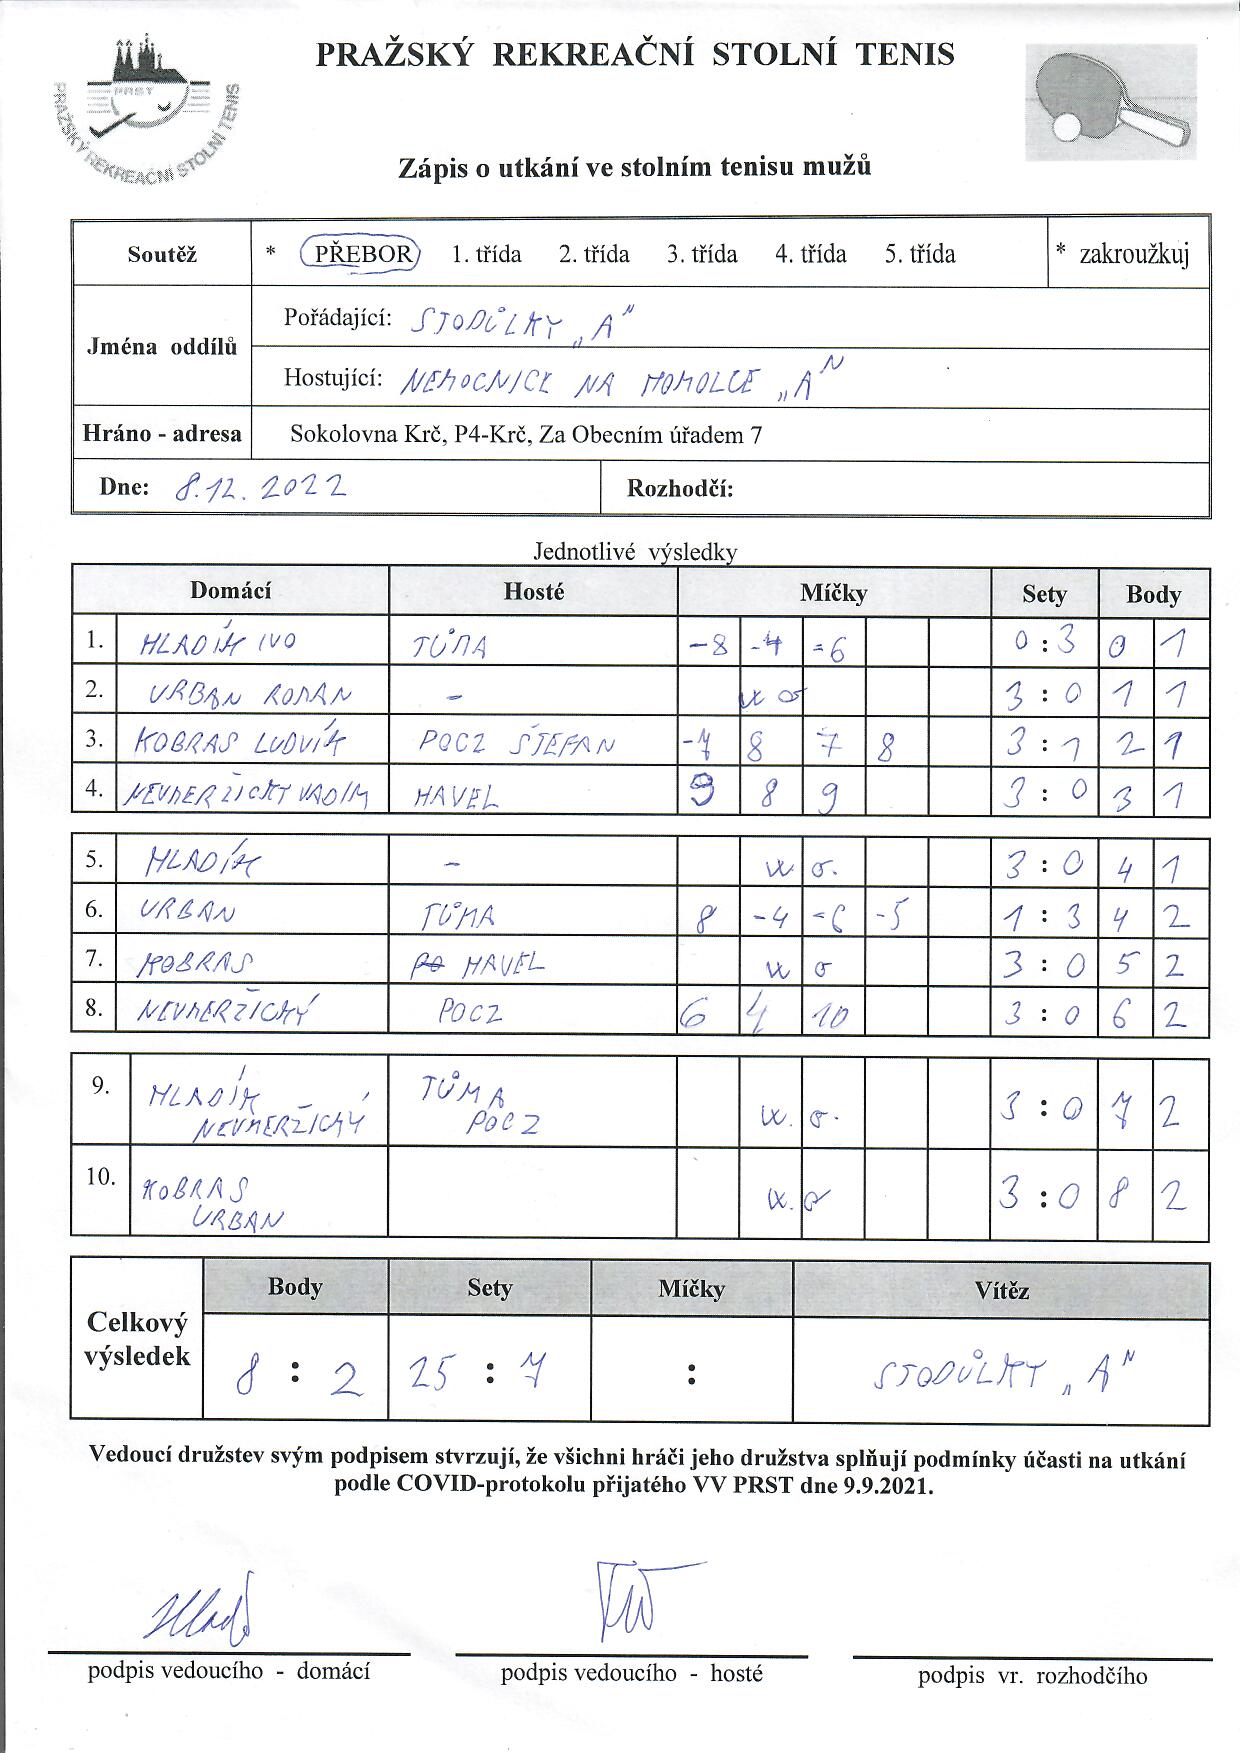 PRAŽSKÝ REKREAČNÍ STOLNÍ TENIS
PRST
PRAŽSKÝ REKREAČNÍ STOLNÍ TENIS
Zápis o utkání ve stolním tenisu mužů
Soutěž * PŘEBOR 1. třída 2. třída 3. třída 4. třída 5. třída * zakroužkuj
Jména oddílů
Pořádající: STODŮLKY „A"
Hostující: NEMOCNICE NA HOMOLCE „A"
Hráno - adresa Sokolovna Krč, P4-Krč, Za Obecním úřadem 7
Dne: 8.12.2022 Rozhodčí:
Jednotlivé výsledky
Domácí Hosté Míčky Sety Body
1. HLADÍK IVO TŮMA -8 -4 -6 0 : 3 0 1
2. URBAN ROMAN - w o 3 : 0 1 1
3. KOBRAS LUDVÍK POCZ ŠTEFAN -7 8 7 8 3 : 1 2 1
4. NEVMERŽICKÝ VADIM HAVEL 9 8 9 3 : 0 3 1
5. HLADÍK - w o. 3 : 0 4 1
6. URBAN TŮMA 8 -4 -6 -5 1 : 3 4 2
7. KOBRAS HAVEL w o 3 : 0 5 2
8. NEVMERŽICKÝ POCZ 6 4 10 3 : 0 6 2
9. HLADÍK TŮMA w. o. 3 : 0 7 2
NEVMERŽICKÝ POCZ
10. KOBRAS w. o 3 : 0 8 2
URBAN
Celkový výsledek
Body Sety Míčky Vítěz
8 : 2 25 : 7 : STODŮLKY „A"
Vedoucí družstev svým podpisem stvrzují, že všichni hráči jeho družstva splňují podmínky účasti na utkání
podle COVID-protokolu přijatého VV PRST dne 9.9.2021.
podpis vedoucího - domácí podpis vedoucího - hosté podpis vr. rozhodčího